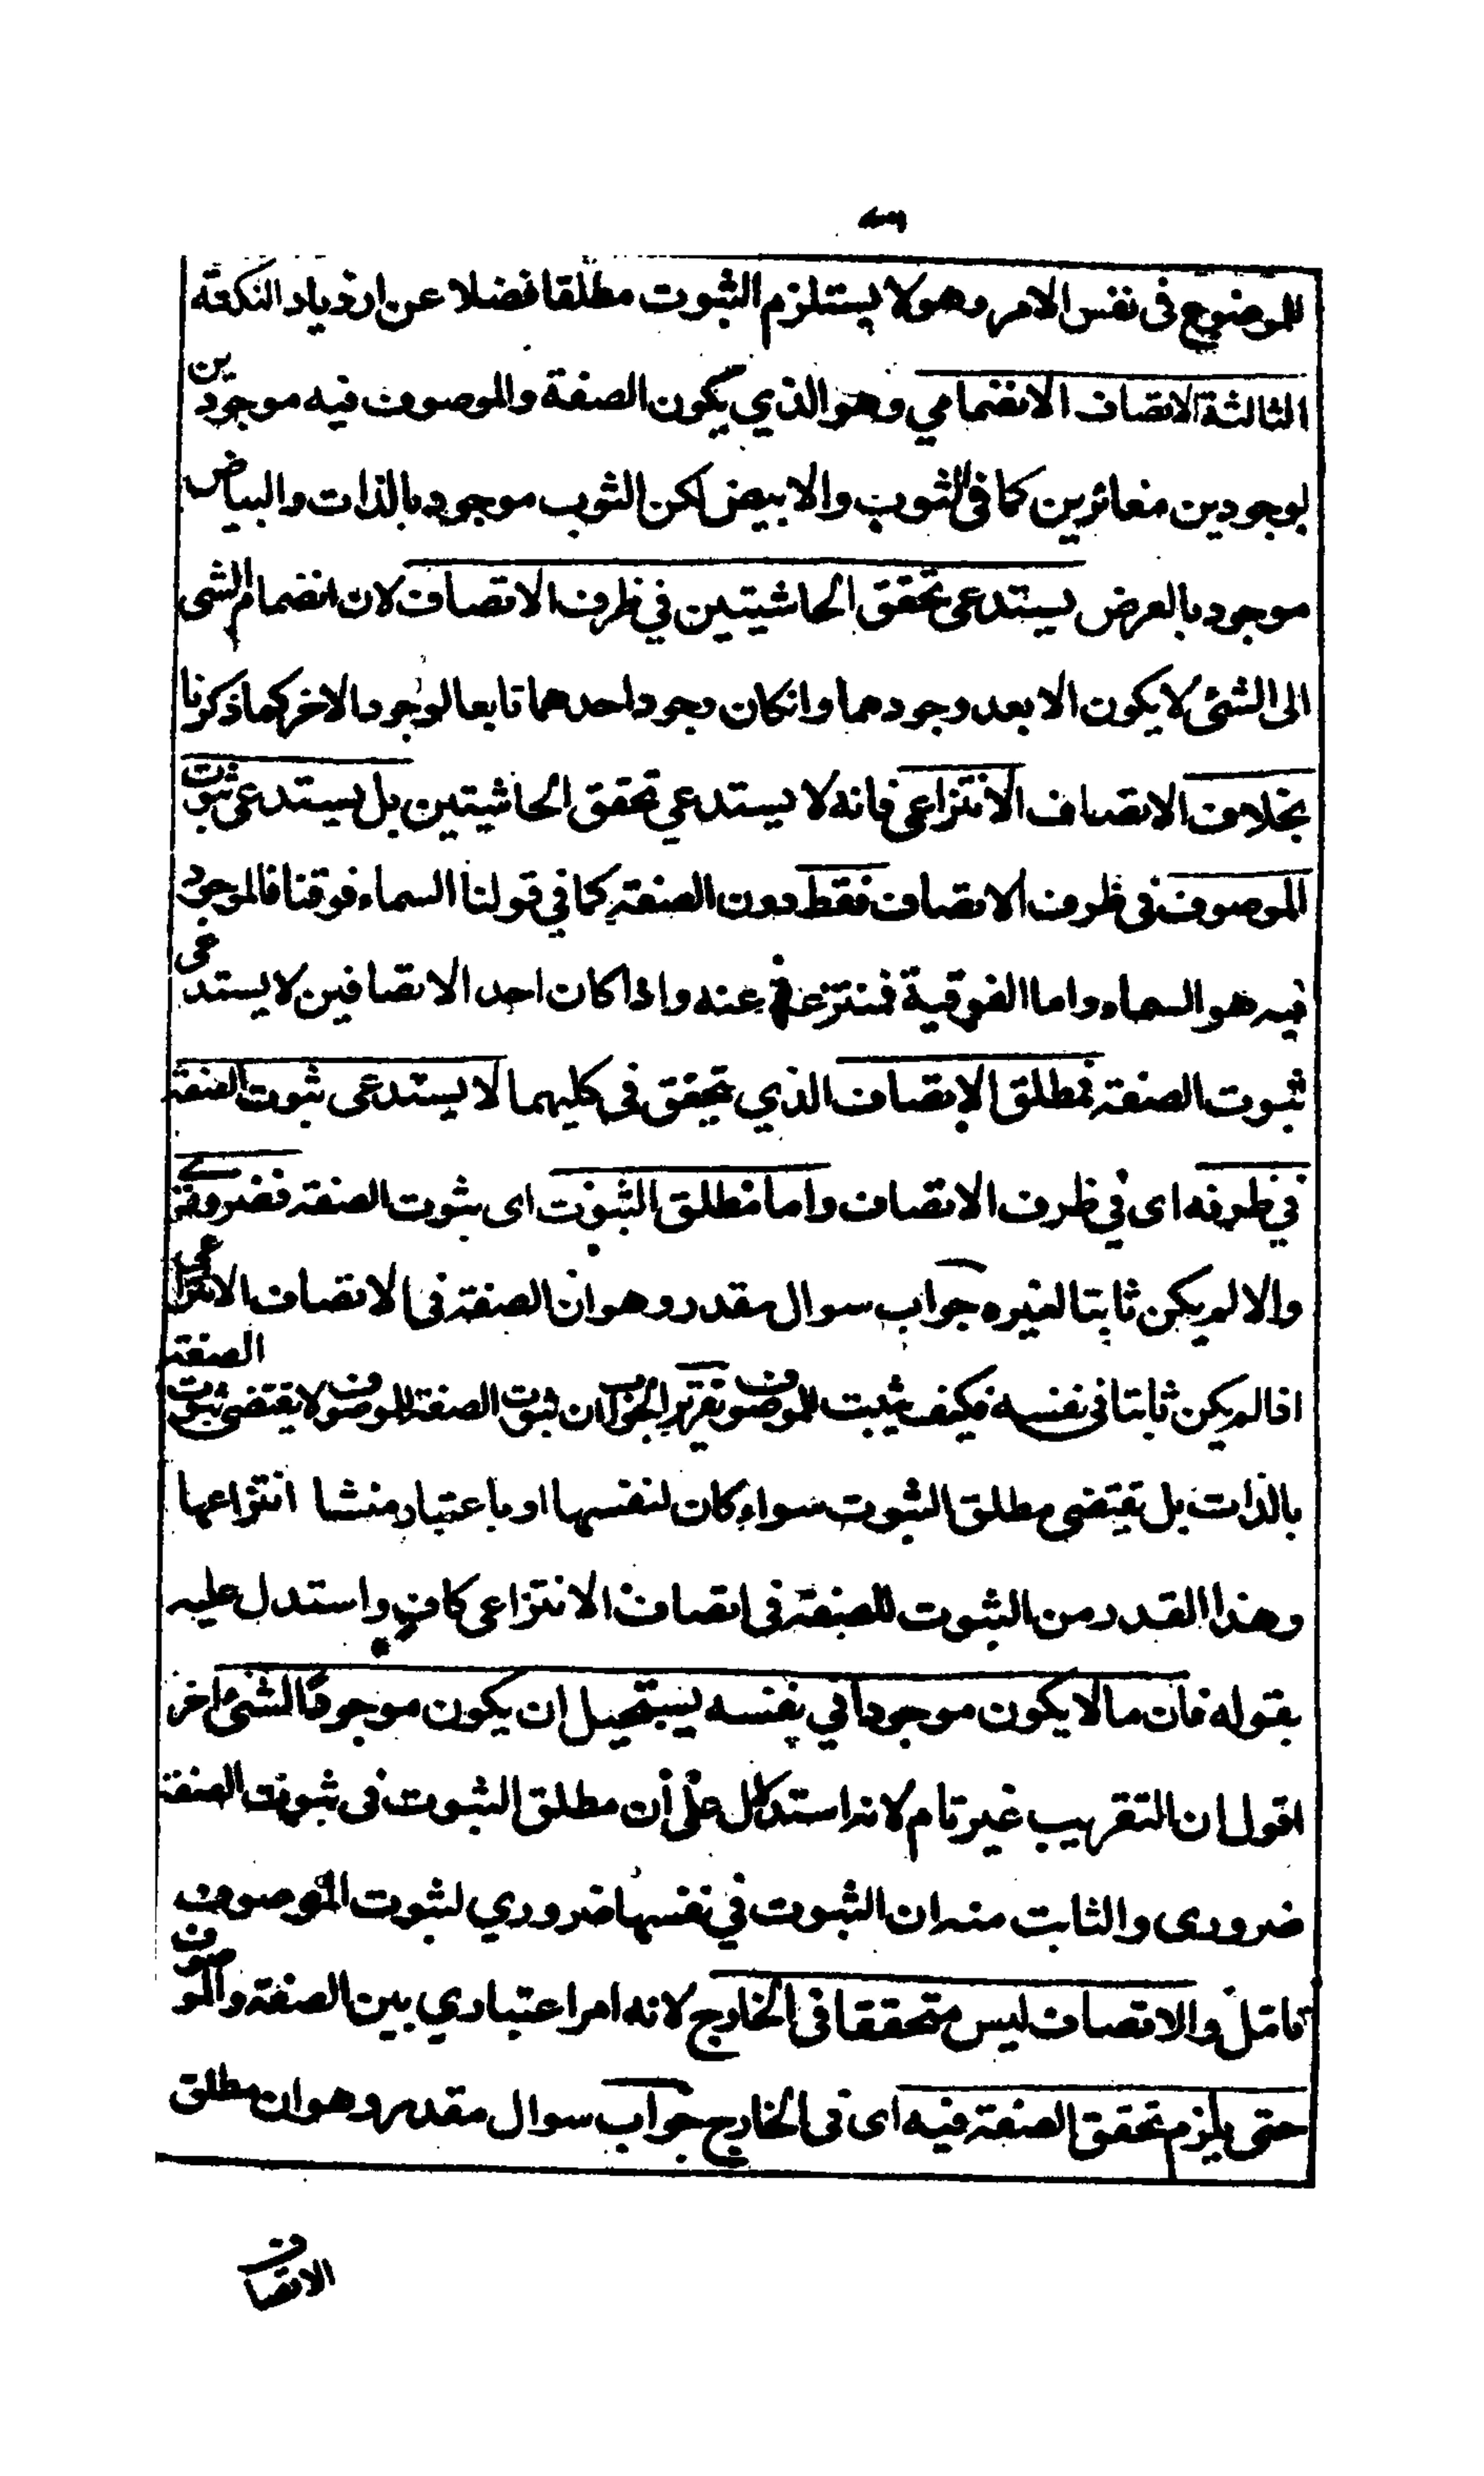 للموضوع فى نفس الامر وهو لا يستلزم الثبوت مطلقا فضلا عن ازدياد النكتة
الثالثة الاتصاف الانضمامي وهو الذي يكون الصفة والموصوف فيه موجودين
بوجودين مغائرين كما فى الثوب والابيض لكن الثوب موجود بالذات والبياض
موجود بالعرض يستدعى تحقق الحاشيتين في ظرف الاتصاف لان انضمام الشى
الى الشئ لا يكون الا بعد وجودهما وانكان وجود احدهما تابعا لوجود الاخر كما ذكرنا
بخلاف الاتصاف الانتزاعى فانه لا يستدعي تحقق الحاشيتين بل يستدعى ثبوت
الموصوف فى ظرف الاتصاف فقط دون الصفة كما في قولنا السماء فوقنا فالموجود
فيه هو السماء واما الفوقية فمنتزعة عنه واذا كان احد الاتصافين لا يستدعى
ثبوت الصفة فمطلق الاتصاف الذي تحقق فى كليهما لا يستدعى ثبوت الصفة
في ظرفه اى في ظرف الاتصاف واما مطلق الثبوت اى ثبوت الصفة فضرورى
والا لم يكن ثابتا لغيره جواب سوال مقدر وهو ان الصفة فى الاتصاف الانتزاعى
اذا لم يكن ثابتا فى نفسه فكيف يثبت للموصوف تقرير الجواب ان ثبوت الصفة للموصوف لا يقتضى ثبوت الصفة
بالذات بل يقتضى مطلق الثبوت سواء كان لنفسها او باعتبار منشا انتزاعها
وهذا القدر من الثبوت للصفة فى اتصاف الانتزاعى كاف واستدل عليه
بقوله فان ما لا يكون موجودا في نفسه يستحيل ان يكون موجودا لشئ اخر
اقول ان التقريب غير تام لانه استدل على أن مطلق الثبوت فى ثبوت الصفة
ضرورى والثابت منه ان الثبوت في نفسها ضروري لثبوت الموصوف
تامل والاتصاف ليس متحققا فى الخارج لانه امر اعتباري بين الصفة والموصوف
حتى يلزم تحقق الصفة فيه اى فى الخارج جواب سوال مقدر وهو ان مطلق
الاتصاف